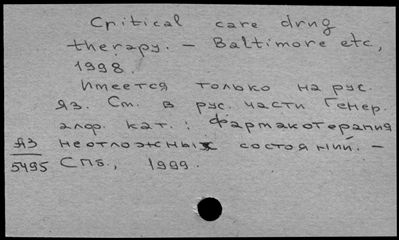 Critical care drug
therapy. – Baltimore etc,
1998.
Имеется только на рус.
яз. См. в рус. части Генер.
алф. кат.: Фармакотерапия
Я3 неотложных состояний. –
5495 СПб., 1999.